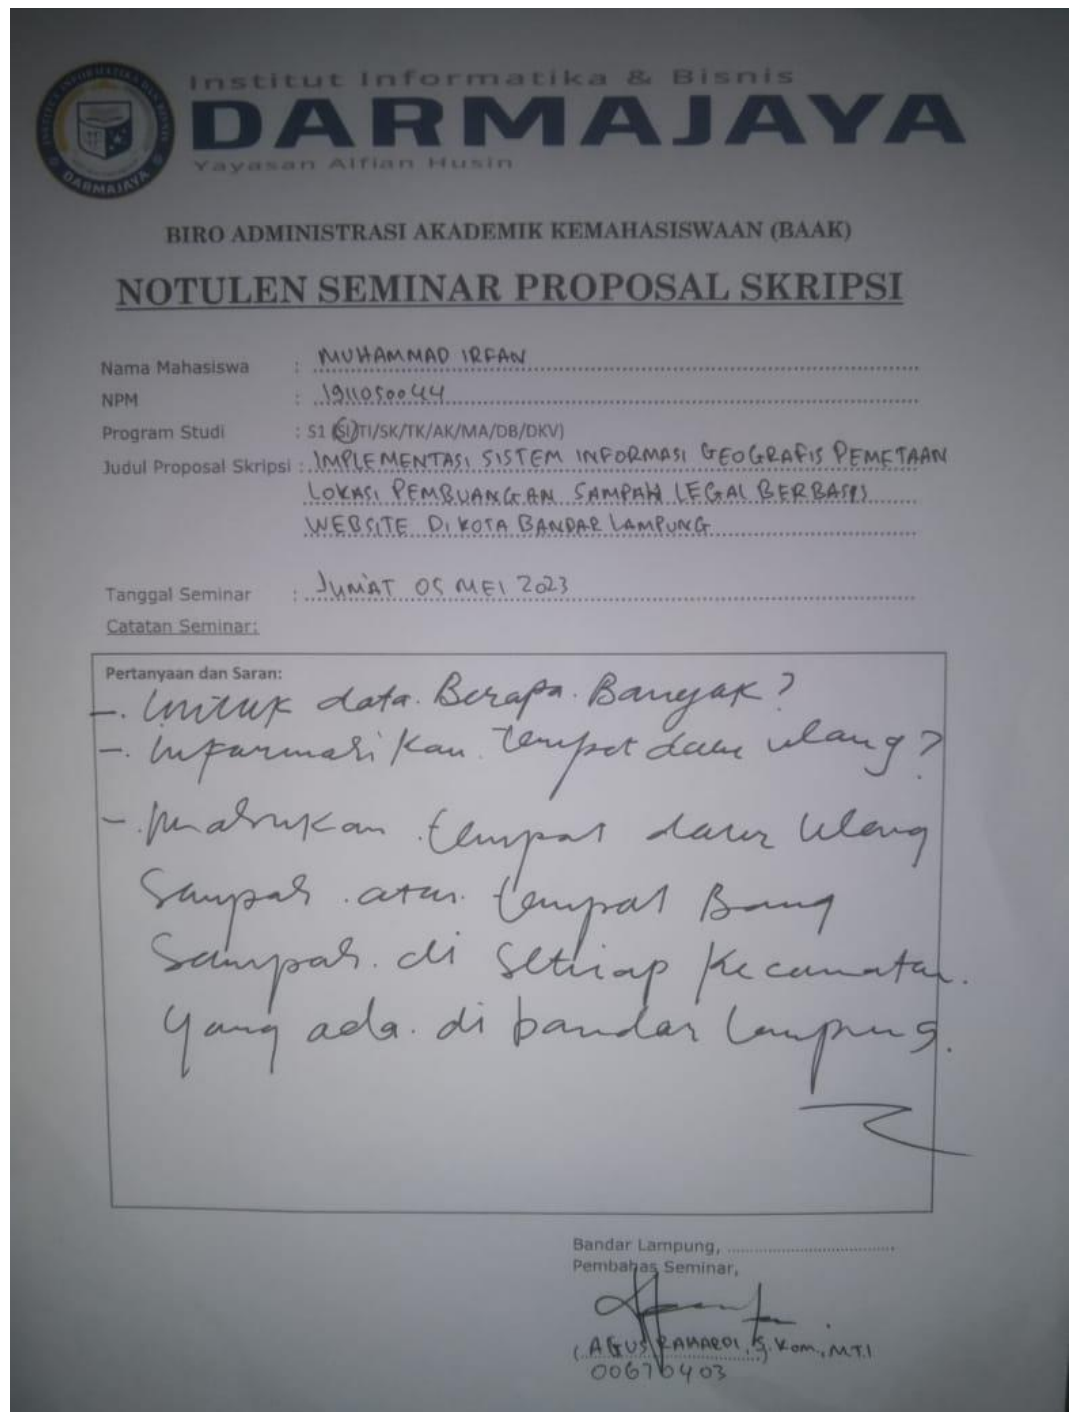 Institut Informatika & Bisnis
DARMAJAYA
Yayasan Alfian Husin
DARMAJAYA
BIRO ADMINISTRASI AKADEMIK KEMAHASISWAAN (BAAK)
NOTULEN SEMINAR PROPOSAL SKRIPSI
Nama Mahasiswa : MUHAMMAD IRFAN
NPM : 1911050044
Program Studi : S1 (SI/TI/SK/TK/AK/MA/DB/DKV)
Judul Proposal Skripsi : IMPLEMENTASI SISTEM INFORMASI GEOGRAFIS PEMETAAN
LOKASI PEMBUANGAN SAMPAH LEGAL BERBASIS
WEBSITE DI KOTA BANDAR LAMPUNG
Tanggal Seminar : JUM'AT 05 MEI 2023
Catatan Seminar:
Pertanyaan dan Saran:
-. Untuk data. Berapa. Banyak?
-. Informasikan. tempat daur ulang?
-. Masukan. tempat daur ulang
Sampah. atau. tempat Bang
Sampah. di Setiap Kecamatan.
yang ada. di bandar Lampung.
Bandar Lampung, ....................
Pembahas Seminar,
(AGUS RAHARDI, S.Kom., M.T.I
00670403